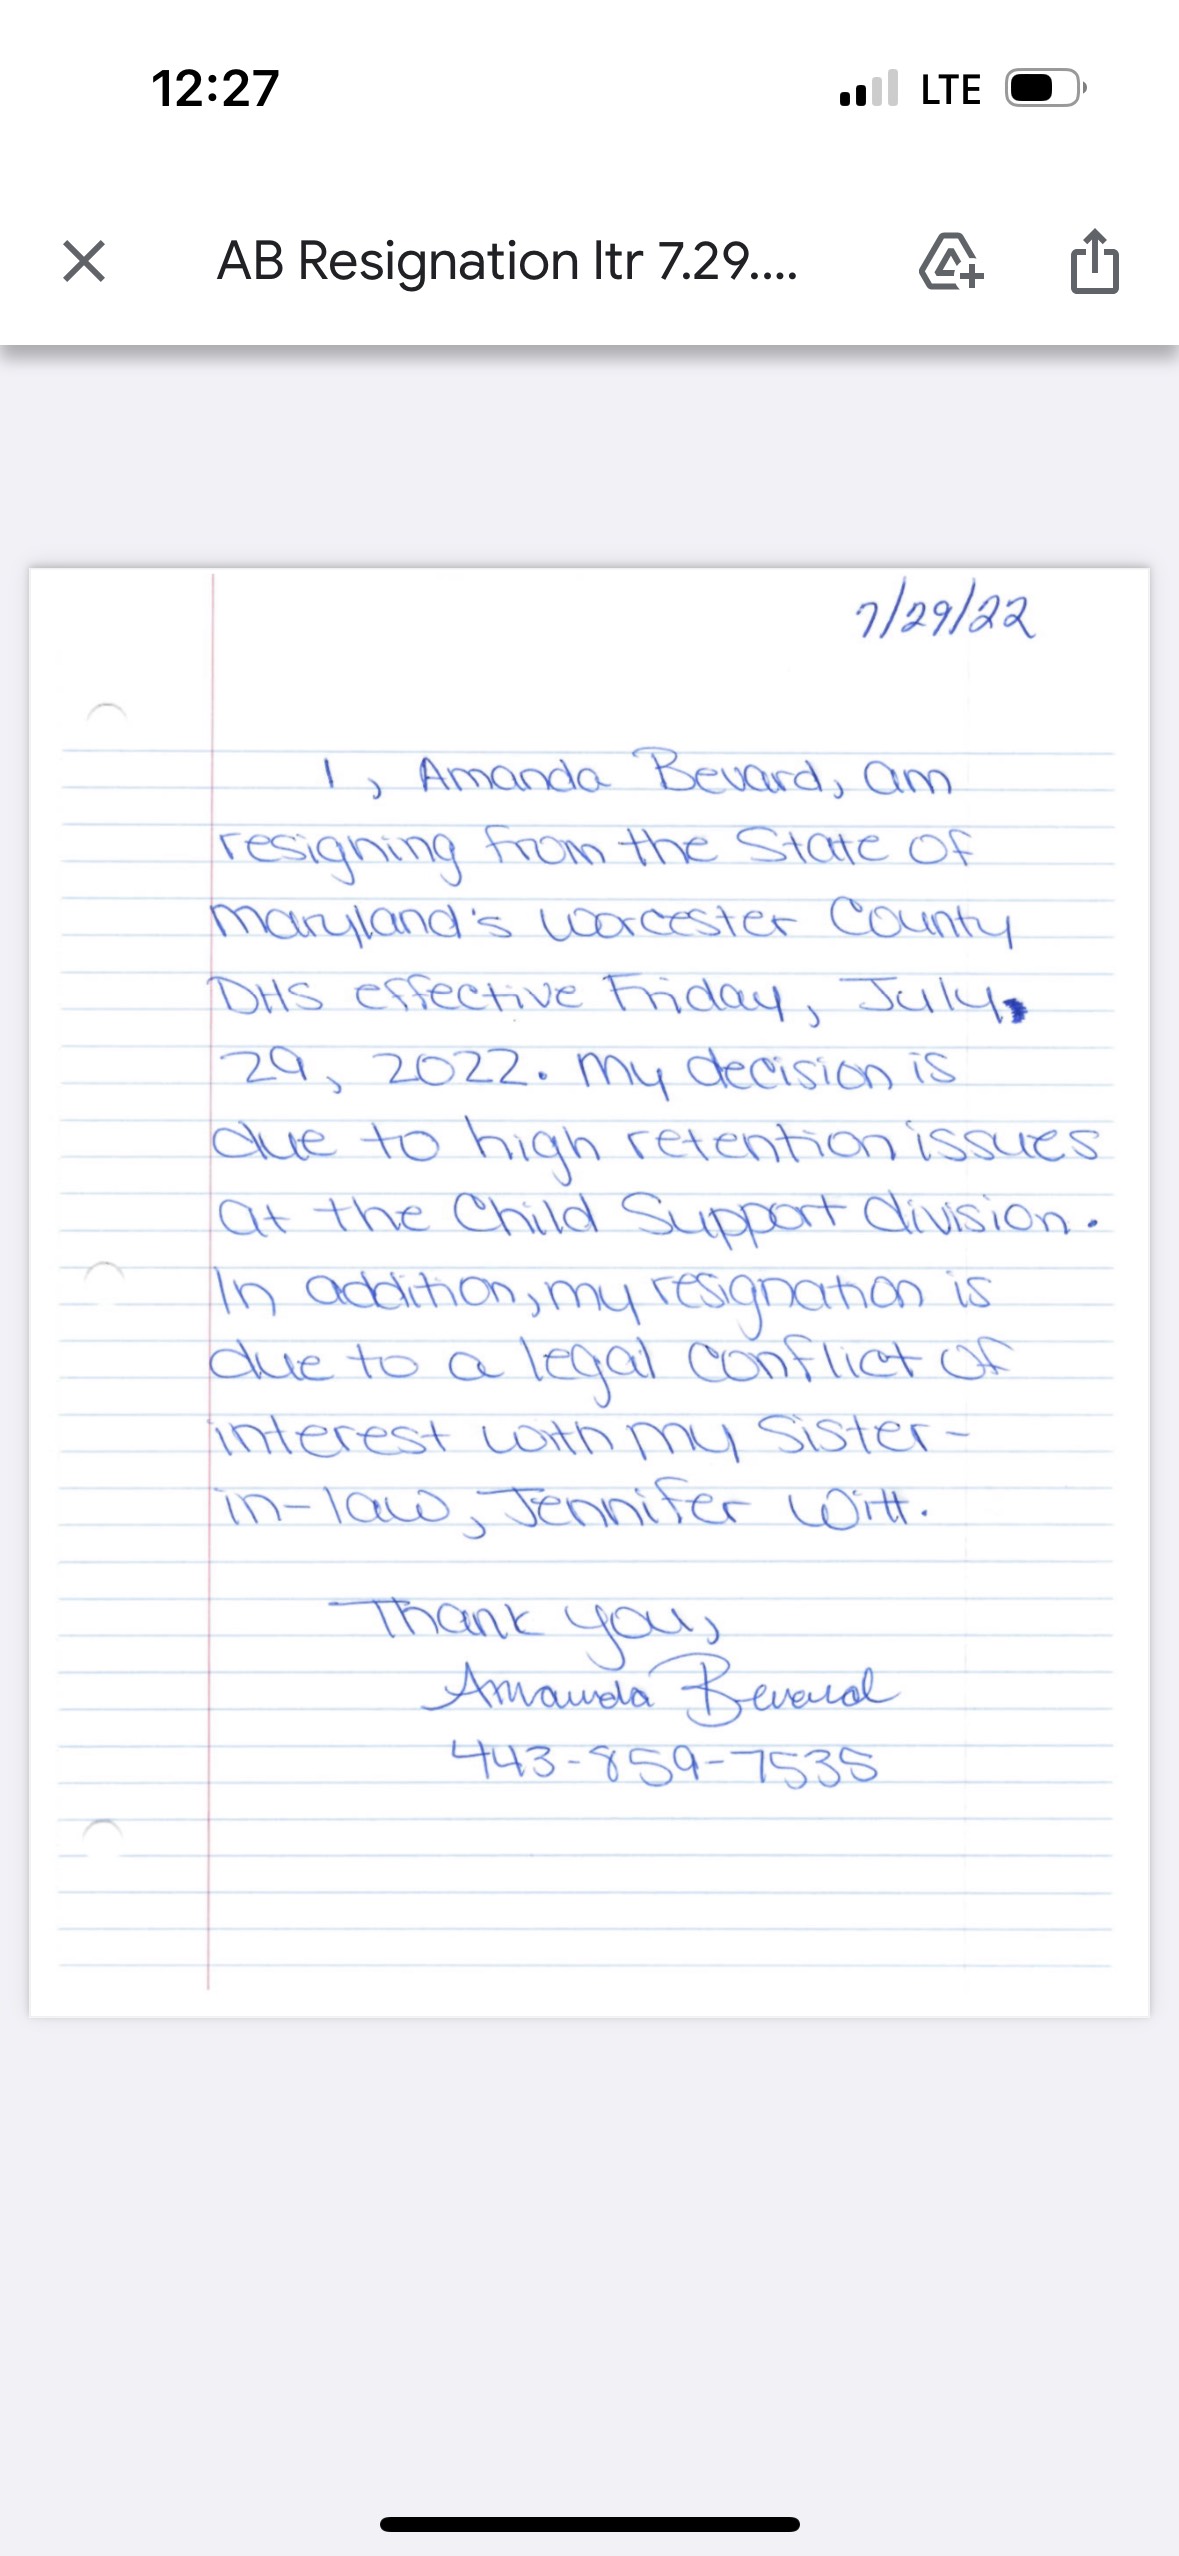 12:27
LTE
AB Resignation ltr 7.29....
7/29/22
I, Amanda Bevard, am
resigning from the State of
Maryland's Worcester County
DHS effective Friday, July
29, 2022. My decision is
due to high retention issues
at the Child Support division.
In addition, my resignation is
due to a legal conflict of
interest with my sister-
in-law, Jennifer Witt.
Thank you,
Amanda Bevard
443-859-7535